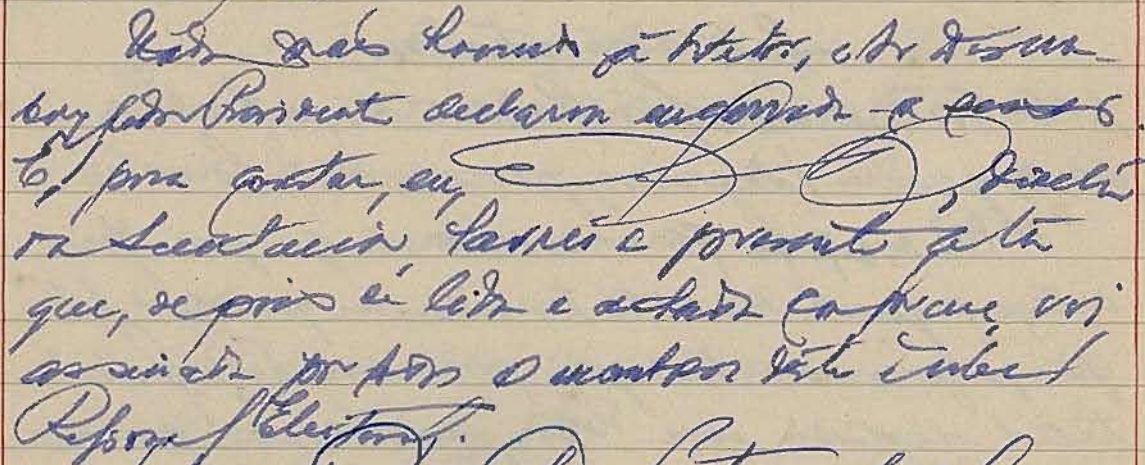 Nada mais havendo à tratar, o Sr Desem-
bargador Presidente declarou encerrada a sessão
E, para constar, eu, , Diretor
da Secretaria, lavrei a presente ata
que, depois de lida e achada conforme, vai
assinada por todos os membros dêste
Regional Eleitoral.